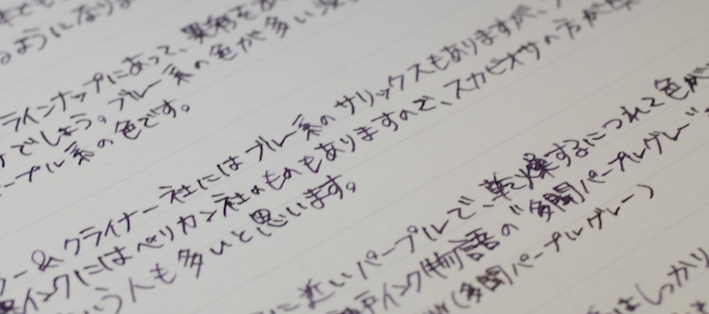 るようになりま
ラインナップにあって、異彩を放
でしょう。ブルー系の色が多い
ープル系の色です。
ー&クライナー社にはブルー系のサリックスもありますが、
インクにはペリカン社のものもありますので、スカビオサの方が
う人も多いと思います。
に近いパープルで、乾燥するにつれて色が
戸インク物語の"多聞パープルグレー"
(多聞パープルグレー)
はしっかり